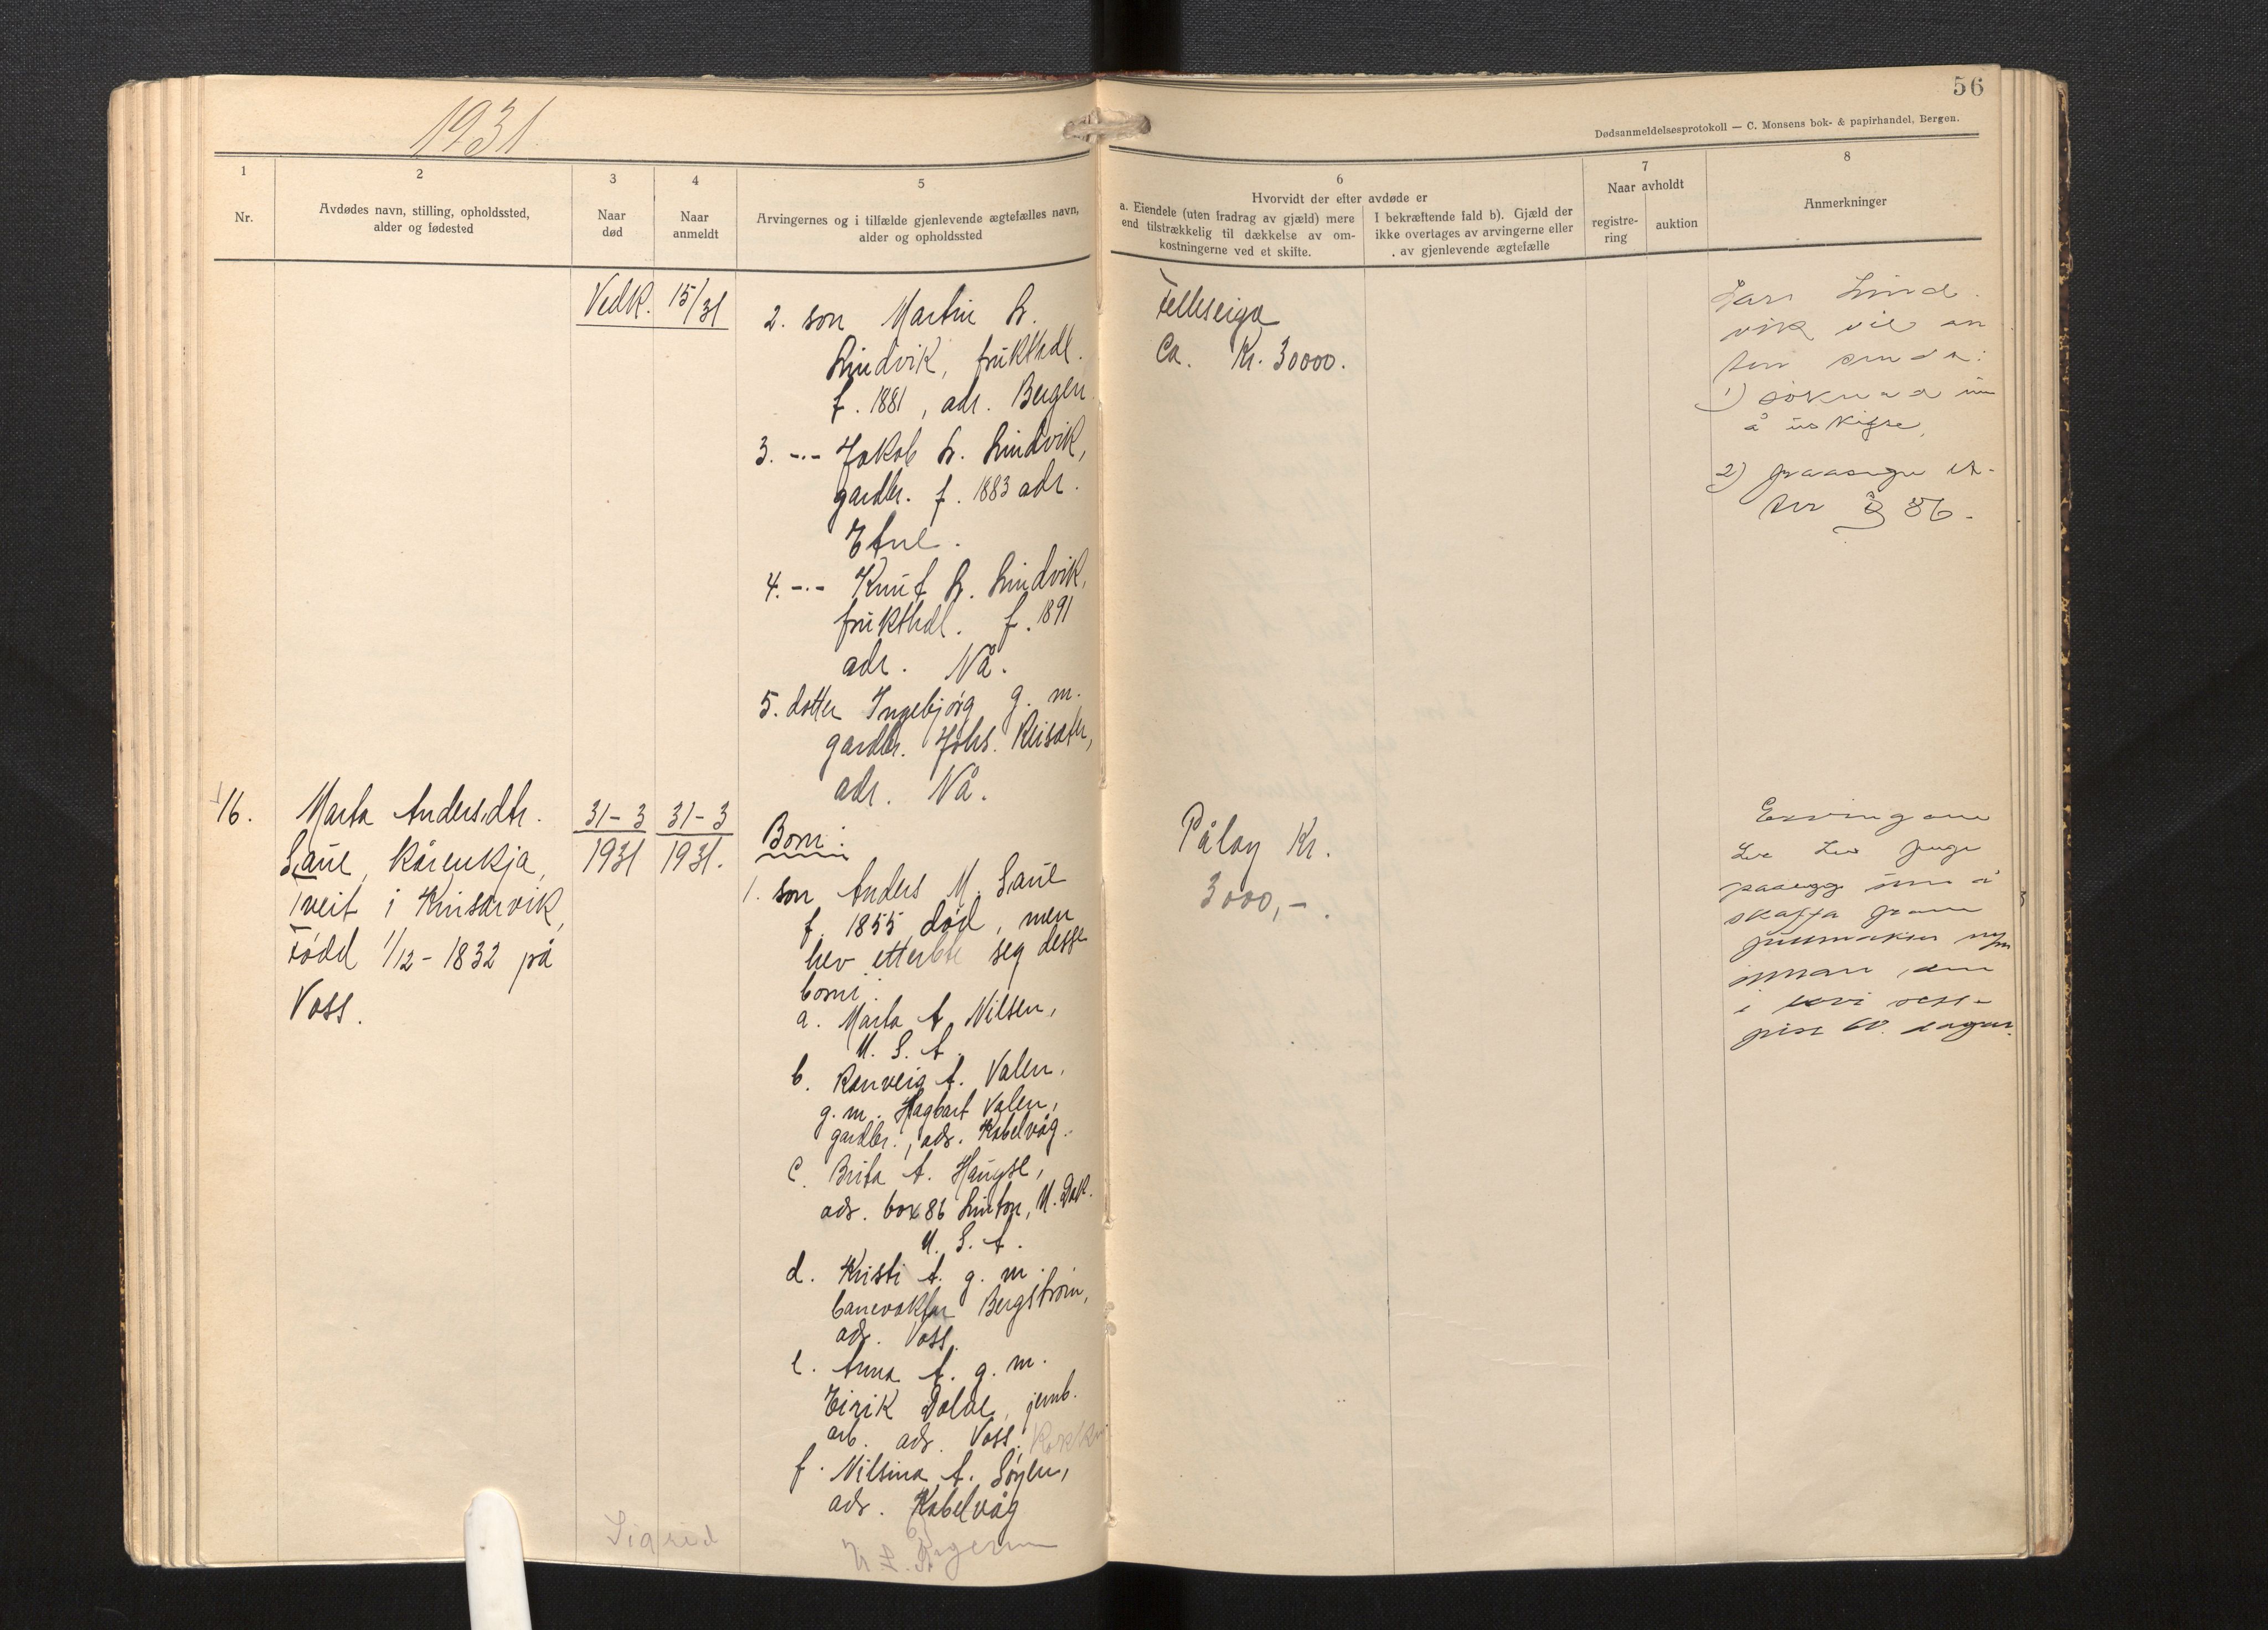 1931
56
Dødsanmeldelsesprotokoll — C. Monsens bok- & papirhandel, Bergen.
1
2
3
4
5
6
7
8
Nr.
Avdødes navn, stilling, opholdssted,
alder og fødested
Naar
død
Naar
anmeldt
Arvingernes og i tilfælde gjenlevende ægtefælles navn,
alder og opholdssted
Hvorvidt der efter avdøde er
a. Eiendele (uten fradrag av gjæld) mere
end tilstrækkelig til dækkelse av om-
kostningerne ved et skifte.
I bekræftende fald b). Gjæld der
ikke overtages av arvingerne eller
av gjenlevende ægtefælle
Naar avholdt
registre-
ring
auktion
Anmerkninger
Vedk. 15/31
2. son Martin L.
Lindvik, frukthdl.
f. 1881, adr. Bergen.
3. -"- Jakob L. Lindvik,
gardbr. f. 1883 adr.
Etne.
4. -"- Knut L. Lindvik,
frukthdl. f. 1891
adr. Nå.
5. dotter Ingebjørg g. m.
gardbr. Johs. Reisæter,
adr. Nå.
Felleseiga
Ca. Kr. 30000.
Lars Lind-
vik vil
1) søknad um
å
2)
ter § 86.
16.
Marta Andersdtr.
Saue, kårenkja,
Tveit i Kinsarvik,
Född 1/12 - 1832 på
Voss.
31-3
1931
31-3
1931.
Born:
1. son Anders M. Saue
f. 1855, död, men
hev etterlate seg desse
borni:
a. Marta A. Nilsen,
U. S. A.
b. Ranveig A. Valen,
g. m. Hagbart Valen,
gardbr., adr. Kabelvåg.
c. Brita A. Haugse,
adr. box 86 Linton, N. Dak.
U. S. A.
d. Kristi A. g. m.
banevakter Bergström,
adr. Voss.
e. Anna A. g. m.
Eirik Dolve, jernb.
arb. adr. Voss.
f. Nilsina A. Søylen,
adr. Kabelvåg
Sigrid
Pålag Kr.
3000,-.
Ervingane
paalegg um å
skaffa fram
innan
i
60 dagar.